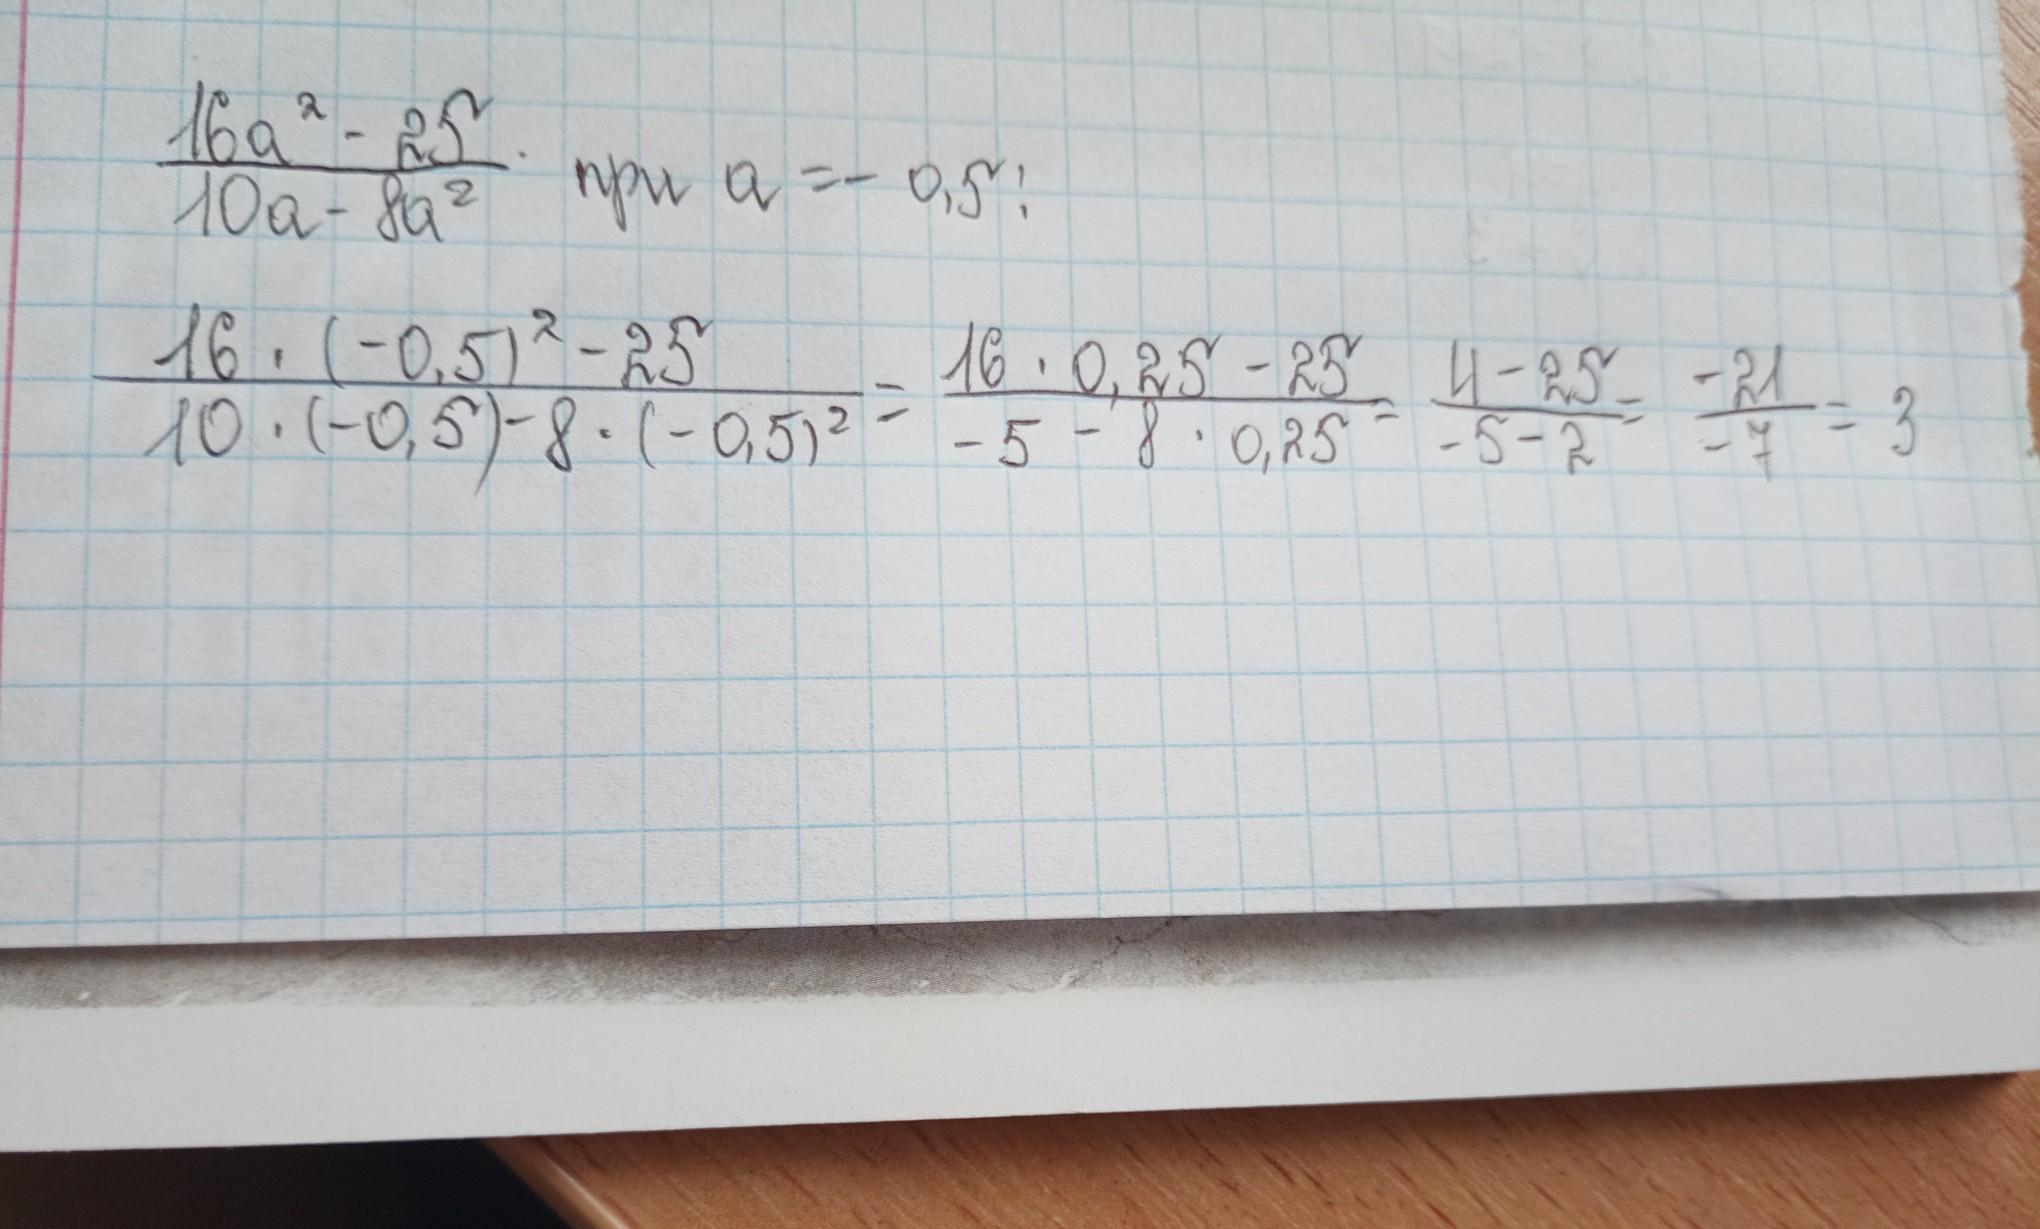 (16a² - 25)/(10a - 8a²) при a = - 0,5:
(16 · (-0,5)² - 25)/(10 · (-0,5) - 8 · (-0,5)²) = (16 · 0,25 - 25)/(-5 - 8 · 0,25) = (4 - 25)/(-5 - 2) = (-21)/(-7) = 3